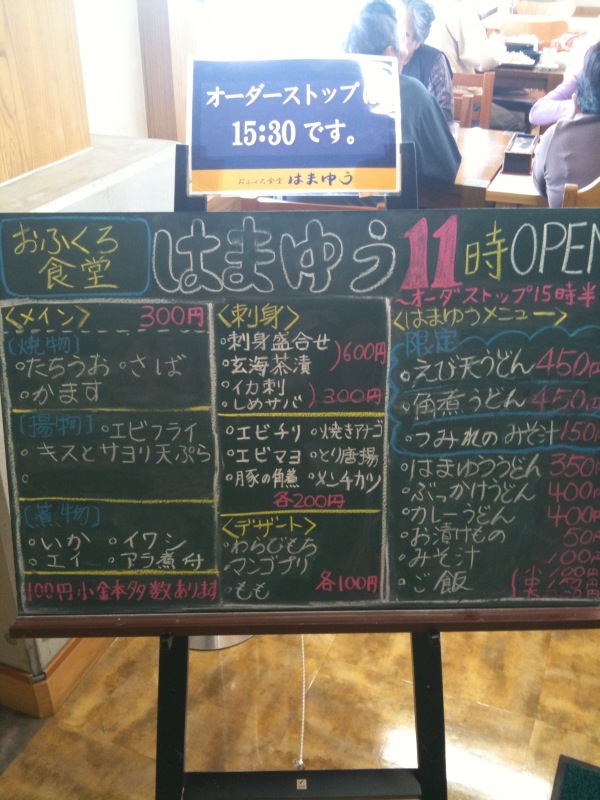 オーダーストップは
15:30です。
おふくろ食堂 はまゆう
おふくろ
食堂
はまゆう
11時OPEN
~オーダストップ15時半
<メイン> 300円
[焼物]
。たちうお 。さば
。かます
[揚物] 。エビフライ
。キスとサヨリ天ぷら
。
[煮物]
。いか 。イワシ
。エイ 。アラ煮付
100円小鉢多数あります
<刺身>
・刺身盛合せ
・玄海茶漬
)600円
・イカ刺
・しめサバ
)300円
・エビチリ ・焼きアナゴ
・エビマヨ ・とり唐揚
・豚の角煮 ・メンチカツ
各200円
<デザート>
・わらびもち
・マンゴプリ
・もも 各100円
<はまゆうメニュー>
限定
。えび天うどん 450円
。角煮うどん 450円
。つみれのみそ汁 150円
。はまゆううどん 350円
。ぶっかけうどん 400円
。カレーうどん 400円
。お漬けもの 50円
。みそ汁 100円
。ご飯